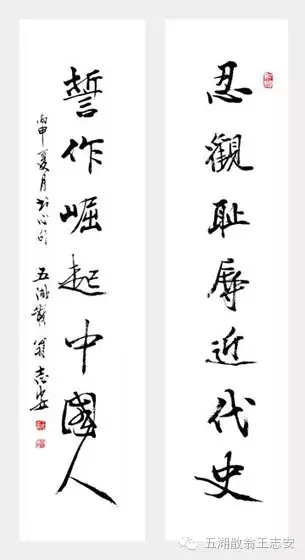 忍觀耻辱近代史
誓作崛起中國人
丙申夏月 心句 五湖散翁志安
五湖散翁王志安